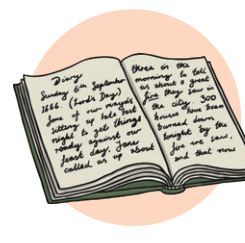 Diary
Sunday 6th September
1666 (Lord's Day)
Some of our mayds
sitting up late last
night to get things
ready against our
feast day, Jane
called us up about
three in the
morning to tell
us about a great
fire they saw in
the city. 300
houses have been
burned down
tonight by the
fire we saw,
and that now